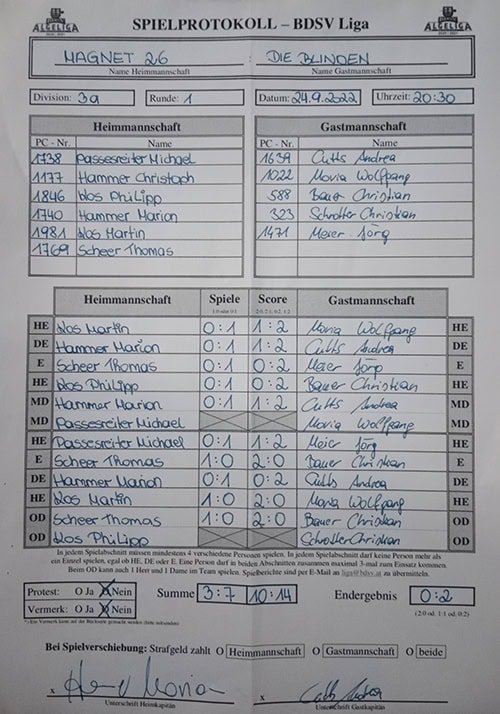 ALGELIGA
SPIELPROTOKOLL – BDSV Liga
ALGELIGA
MAGNET 26 : DIE BLINDEN
Name Heimmannschaft Name Gastmannschaft
Division: 3a Runde: 1 Datum: 24.9.2022 Uhrzeit: 20:30
Heimmannschaft Gastmannschaft
PC - Nr. Name PC - Nr. Name
1738 Passesreiter Michael 1639 Cutts Andrea
1177 Hammer Christoph 1022 Movia Wolfgang
1846 Wos Philipp 588 Bauer Christian
1740 Hammer Marion 323 Schrotter Christian
1981 Wos Martin 1471 Meier Jörg
1769 Scheer Thomas
Heimmannschaft Spiele Score Gastmannschaft
1:0 oder 0:1 2:0, 2:1, 0:2, 1:2
HE Wos Martin 0:1 1:2 Movia Wolfgang HE
DE Hammer Marion 0:1 1:2 Cutts Andrea DE
E Scheer Thomas 0:1 0:2 Meier Jörg E
HE Wos Philipp 0:1 0:2 Bauer Christian HE
MD Hammer Marion 0:1 1:2 Cutts Andrea MD
MD Passesreiter Michael Movia Wolfgang MD
HE Passesreiter Michael 0:1 1:2 Meier Jörg HE
E Scheer Thomas 1:0 2:0 Bauer Christian E
DE Hammer Marion 0:1 0:2 Cutts Andrea DE
HE Wos Martin 1:0 2:0 Movia Wolfgang HE
OD Scheer Thomas 1:0 2:0 Bauer Christian OD
OD Wos Philipp Schrotter Christian OD
In jedem Spielabschnitt müssen mindestens 4 verschiedene Personen spielen. In jedem Spielabschnitt darf keine Person mehr als
ein Einzel spielen, egal ob HE, DE oder E. Eine Person darf in beiden Abschnitten zusammen maximal 3-mal zum Einsatz kommen.
Beim OD kann auch 1 Herr und 1 Dame im Team spielen. Spielberichte sind per E-Mail an liga@bdsv.at zu übermitteln.
Protest: O Ja O Nein Summe 3:7 10:14 Endergebnis 0:2
Vermerk: O Ja O Nein (2:0 od. 1:1 od. 0:2)
Bei Spielverschiebung: Strafgeld zahlt O Heimmannschaft O Gastmannschaft O beide
x x
Unterschrift Heimkapitän Unterschrift Gastkapitän